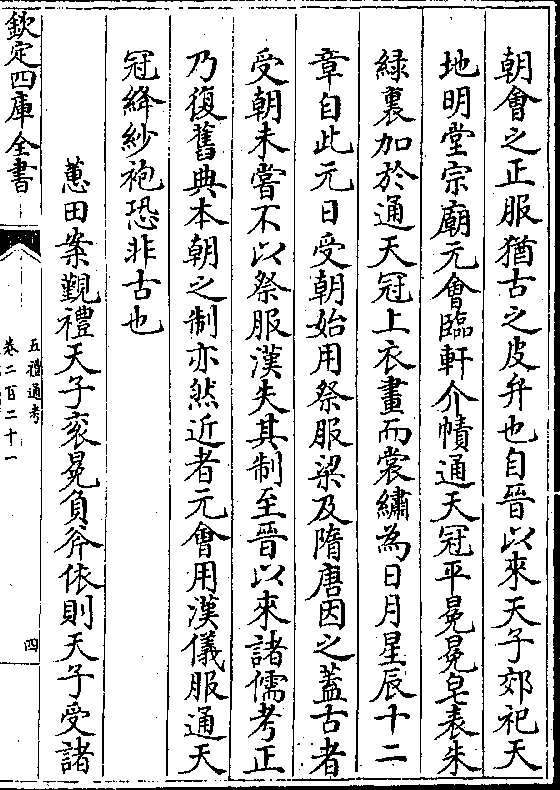 朝會之正服猶古之皮弁也自晉以來天子郊祀天
地明堂宗廟元會臨軒介幘通天冠平冕冕皂表朱
綠裏加於通天冠上衣畫而裳繡為日月星辰十二
章自此元日受朝始用祭服梁及隋唐因之蓋古者
受朝未嘗不以祭服漢失其制至晉以來諸儒考正
乃復舊典本朝之制亦然近者元會用漢儀服通天
冠絳紗袍恐非古也
蕙田案覲禮天子衮冕負斧依則天子受諸
欽定四庫全書
五禮通考
卷二百二十一
四